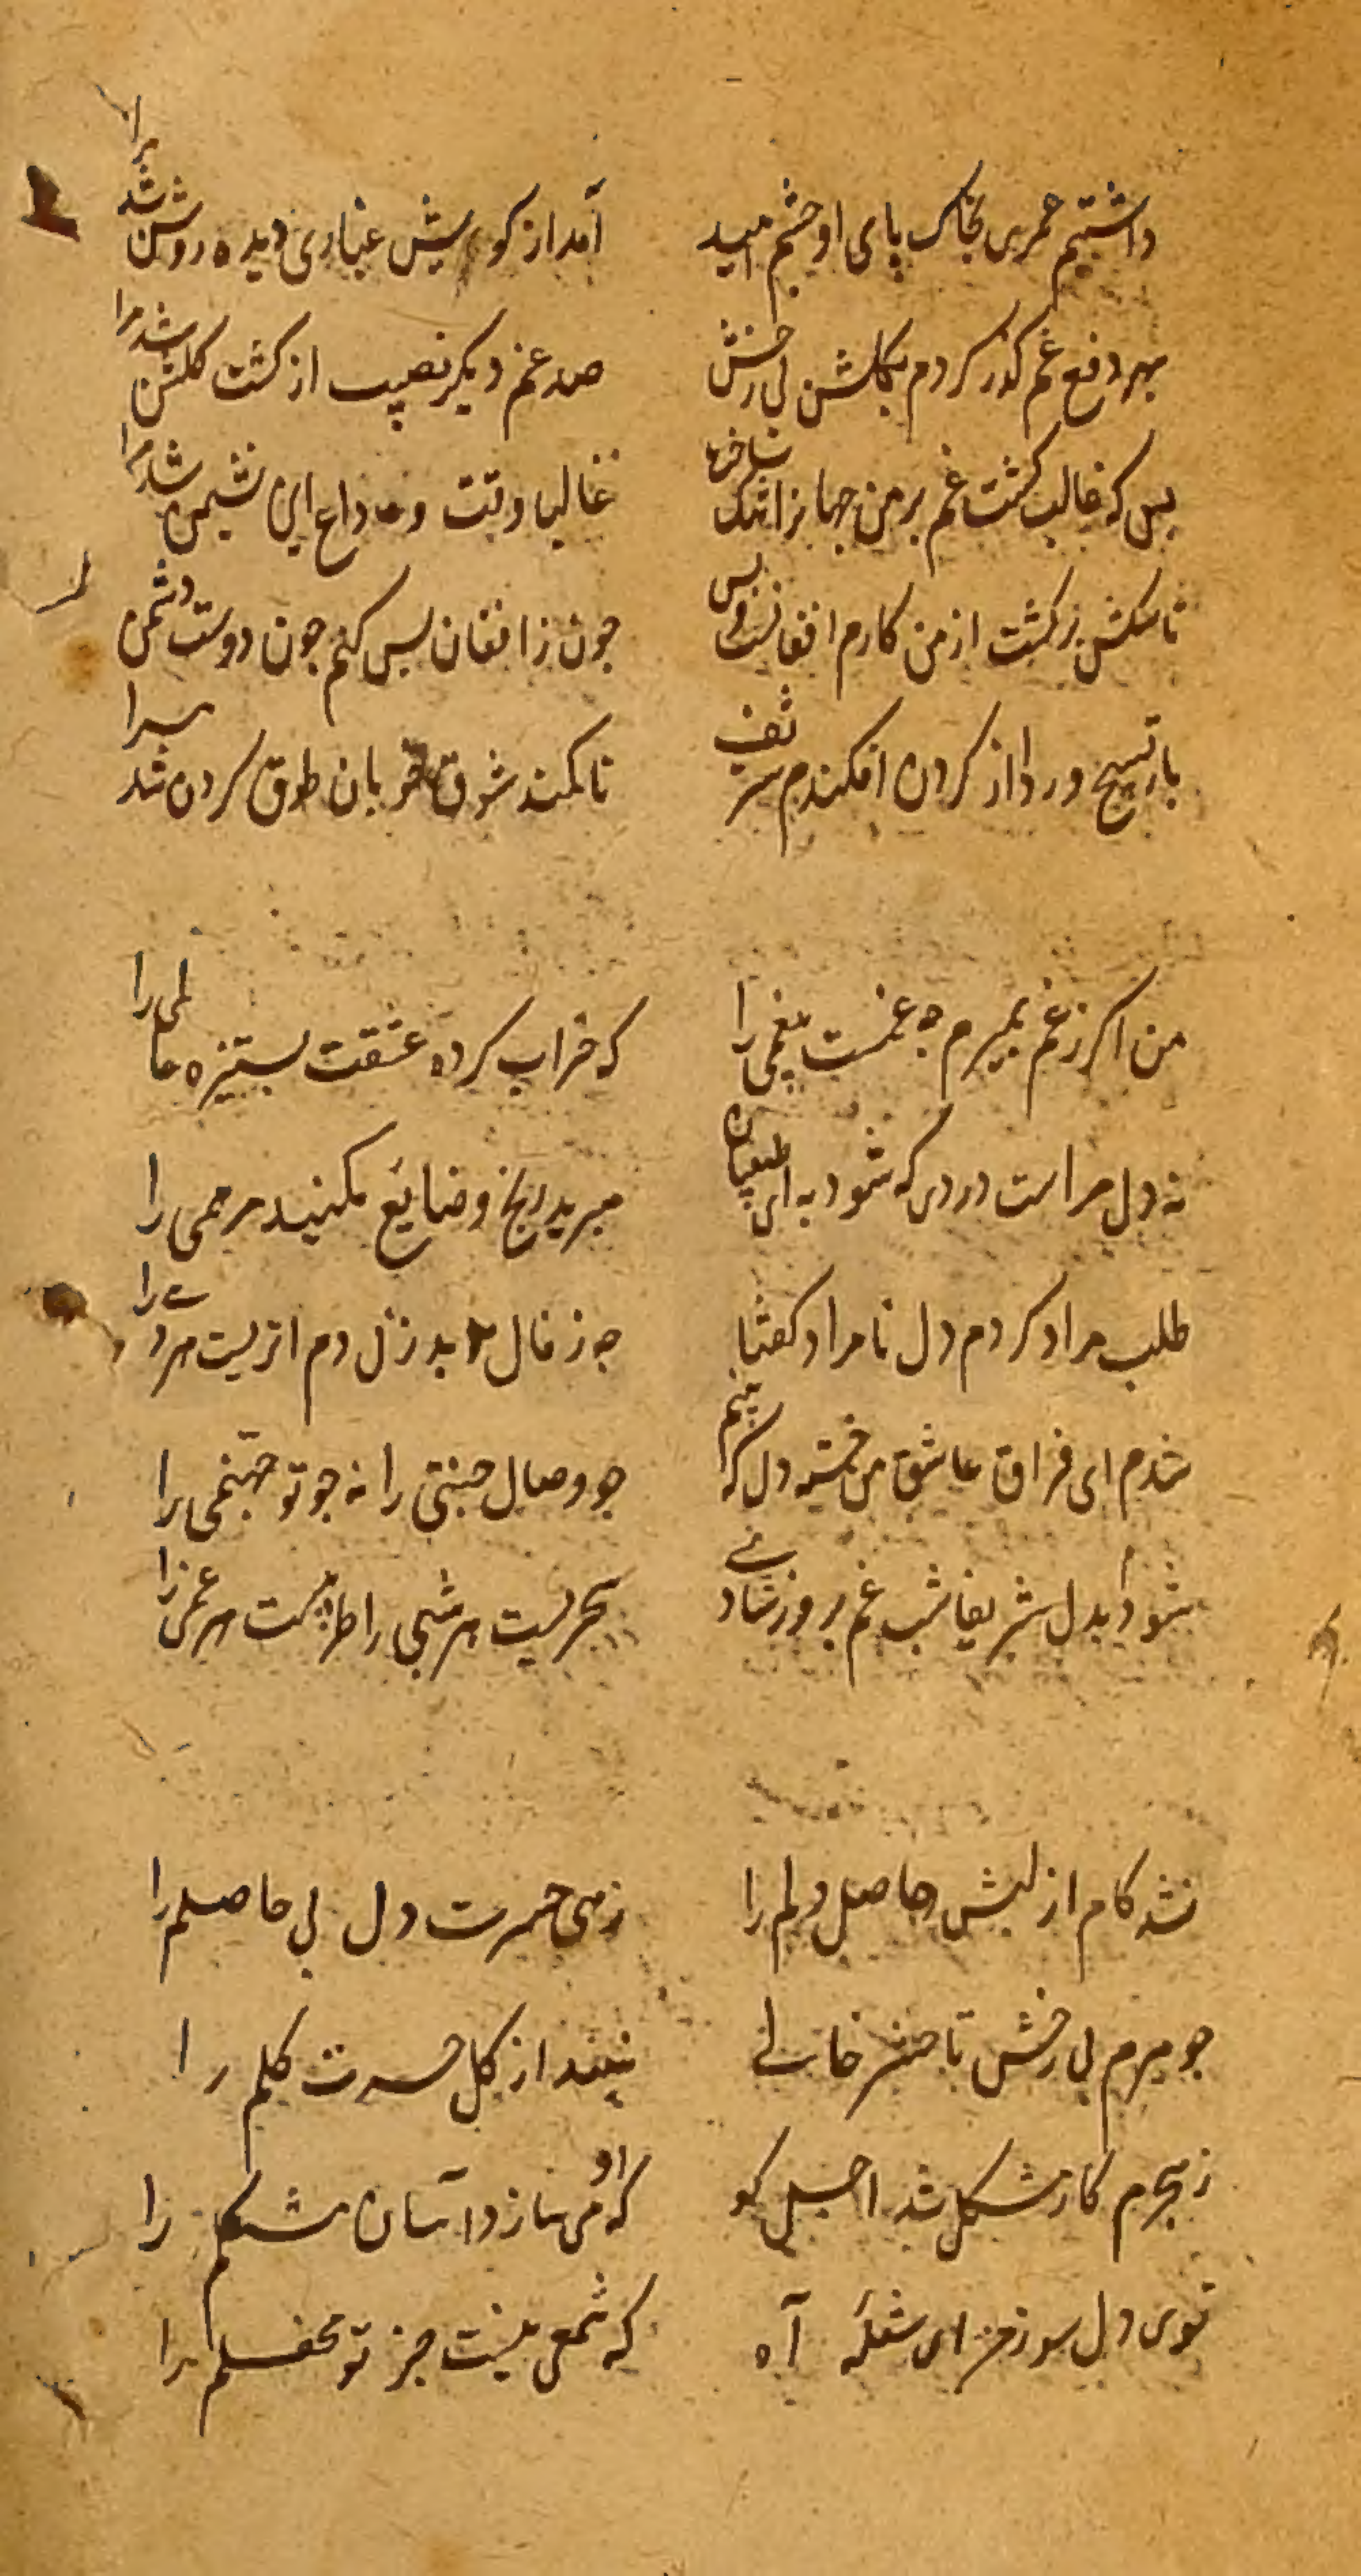 داشتیم عمری بخاک پای او چشم امید آمد از کویش غباری دیده روشن شد مرا
بهر دفع غم گذر کردم بگلشن بی رخش صد غم دیگر نصیب از گشت گلشن شد مرا
بس که غالب گشت غم بر من جهانرا تنگ ساخت غالبا وقت وداع این نشیمن شد مرا
تا سگش برگشت از من کارم افغانست و بس چون ز افغان بس کنم چون دوست دشمن شد مرا
بار تسبیح ورد از گردن افکندم شریف تا کمند شوق خوبان طوق گردن شد مرا
من اگر ز غم بمیرم چه غمست بیغمی را که خراب کرده عشقت بستیزه عالمی را
نه دل مراست دردی که شود به ای طبیبان مبرید رنج و ضایع مکنید مرهمی را
طلب مراد کردم دل نامراد گفتا چه ز فال بد زنی دم اثریست هر دمی را
شدم ای فراق عاشق من خسته دل که بینم چو وصال جنتی را نه چو تو جهنمی را
شود ار بدل شریفا شب غم بروز شادی سحریست هر شبی را طربیست هر غمی را
نشد کام از لبش حاصل دلم را زهی حسرت دل بی حاصلم را
چو میرم بی رخش تا حشر خالی نبیند از گل حسرت گلم را
ز هجرم کار مشکل شد اجل کو که او میسازد آسان مشکلم را
توی دل سوز من ای شعله آه که شمعی نیست جز تو محفلم را